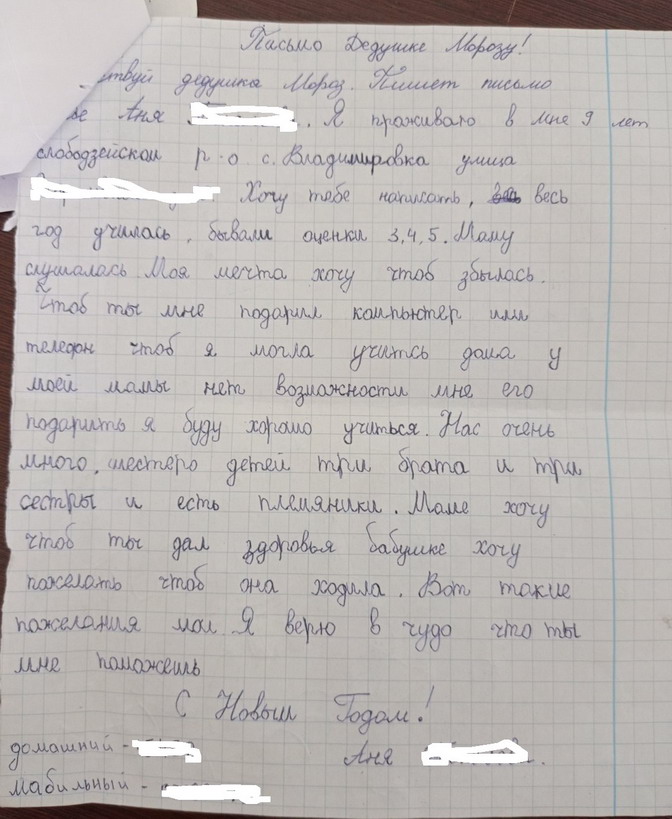 Письмо Дедушке Морозу!
ствуй дедушка Мороз. Пишет письмо
бе Аня . Я проживаю в мне 9 лет
слободзейском р-о с. Владимировка улица
Хочу тебе написать, весь
год училась, бывали оценки 3,4,5. Маму
слушалась. Моя мечта хочу чтоб збылась.
Чтоб ты мне подарил компьютер или
телефон чтоб я могла учитсь дома у
моей мамы нет возможности мне его
подарить я буду хорошо учиться. Нас очень
много, шестеро детей три брата и три
сестры и есть племяники. Маме хочу
чтоб ты дал здоровья бабушке хочу
пожелать чтоб она ходила. Вот такие
пожелания мои. Я верю в чудо что ты
мне поможешь
С Новым Годом!
домашний -
Аня .
мабильный -